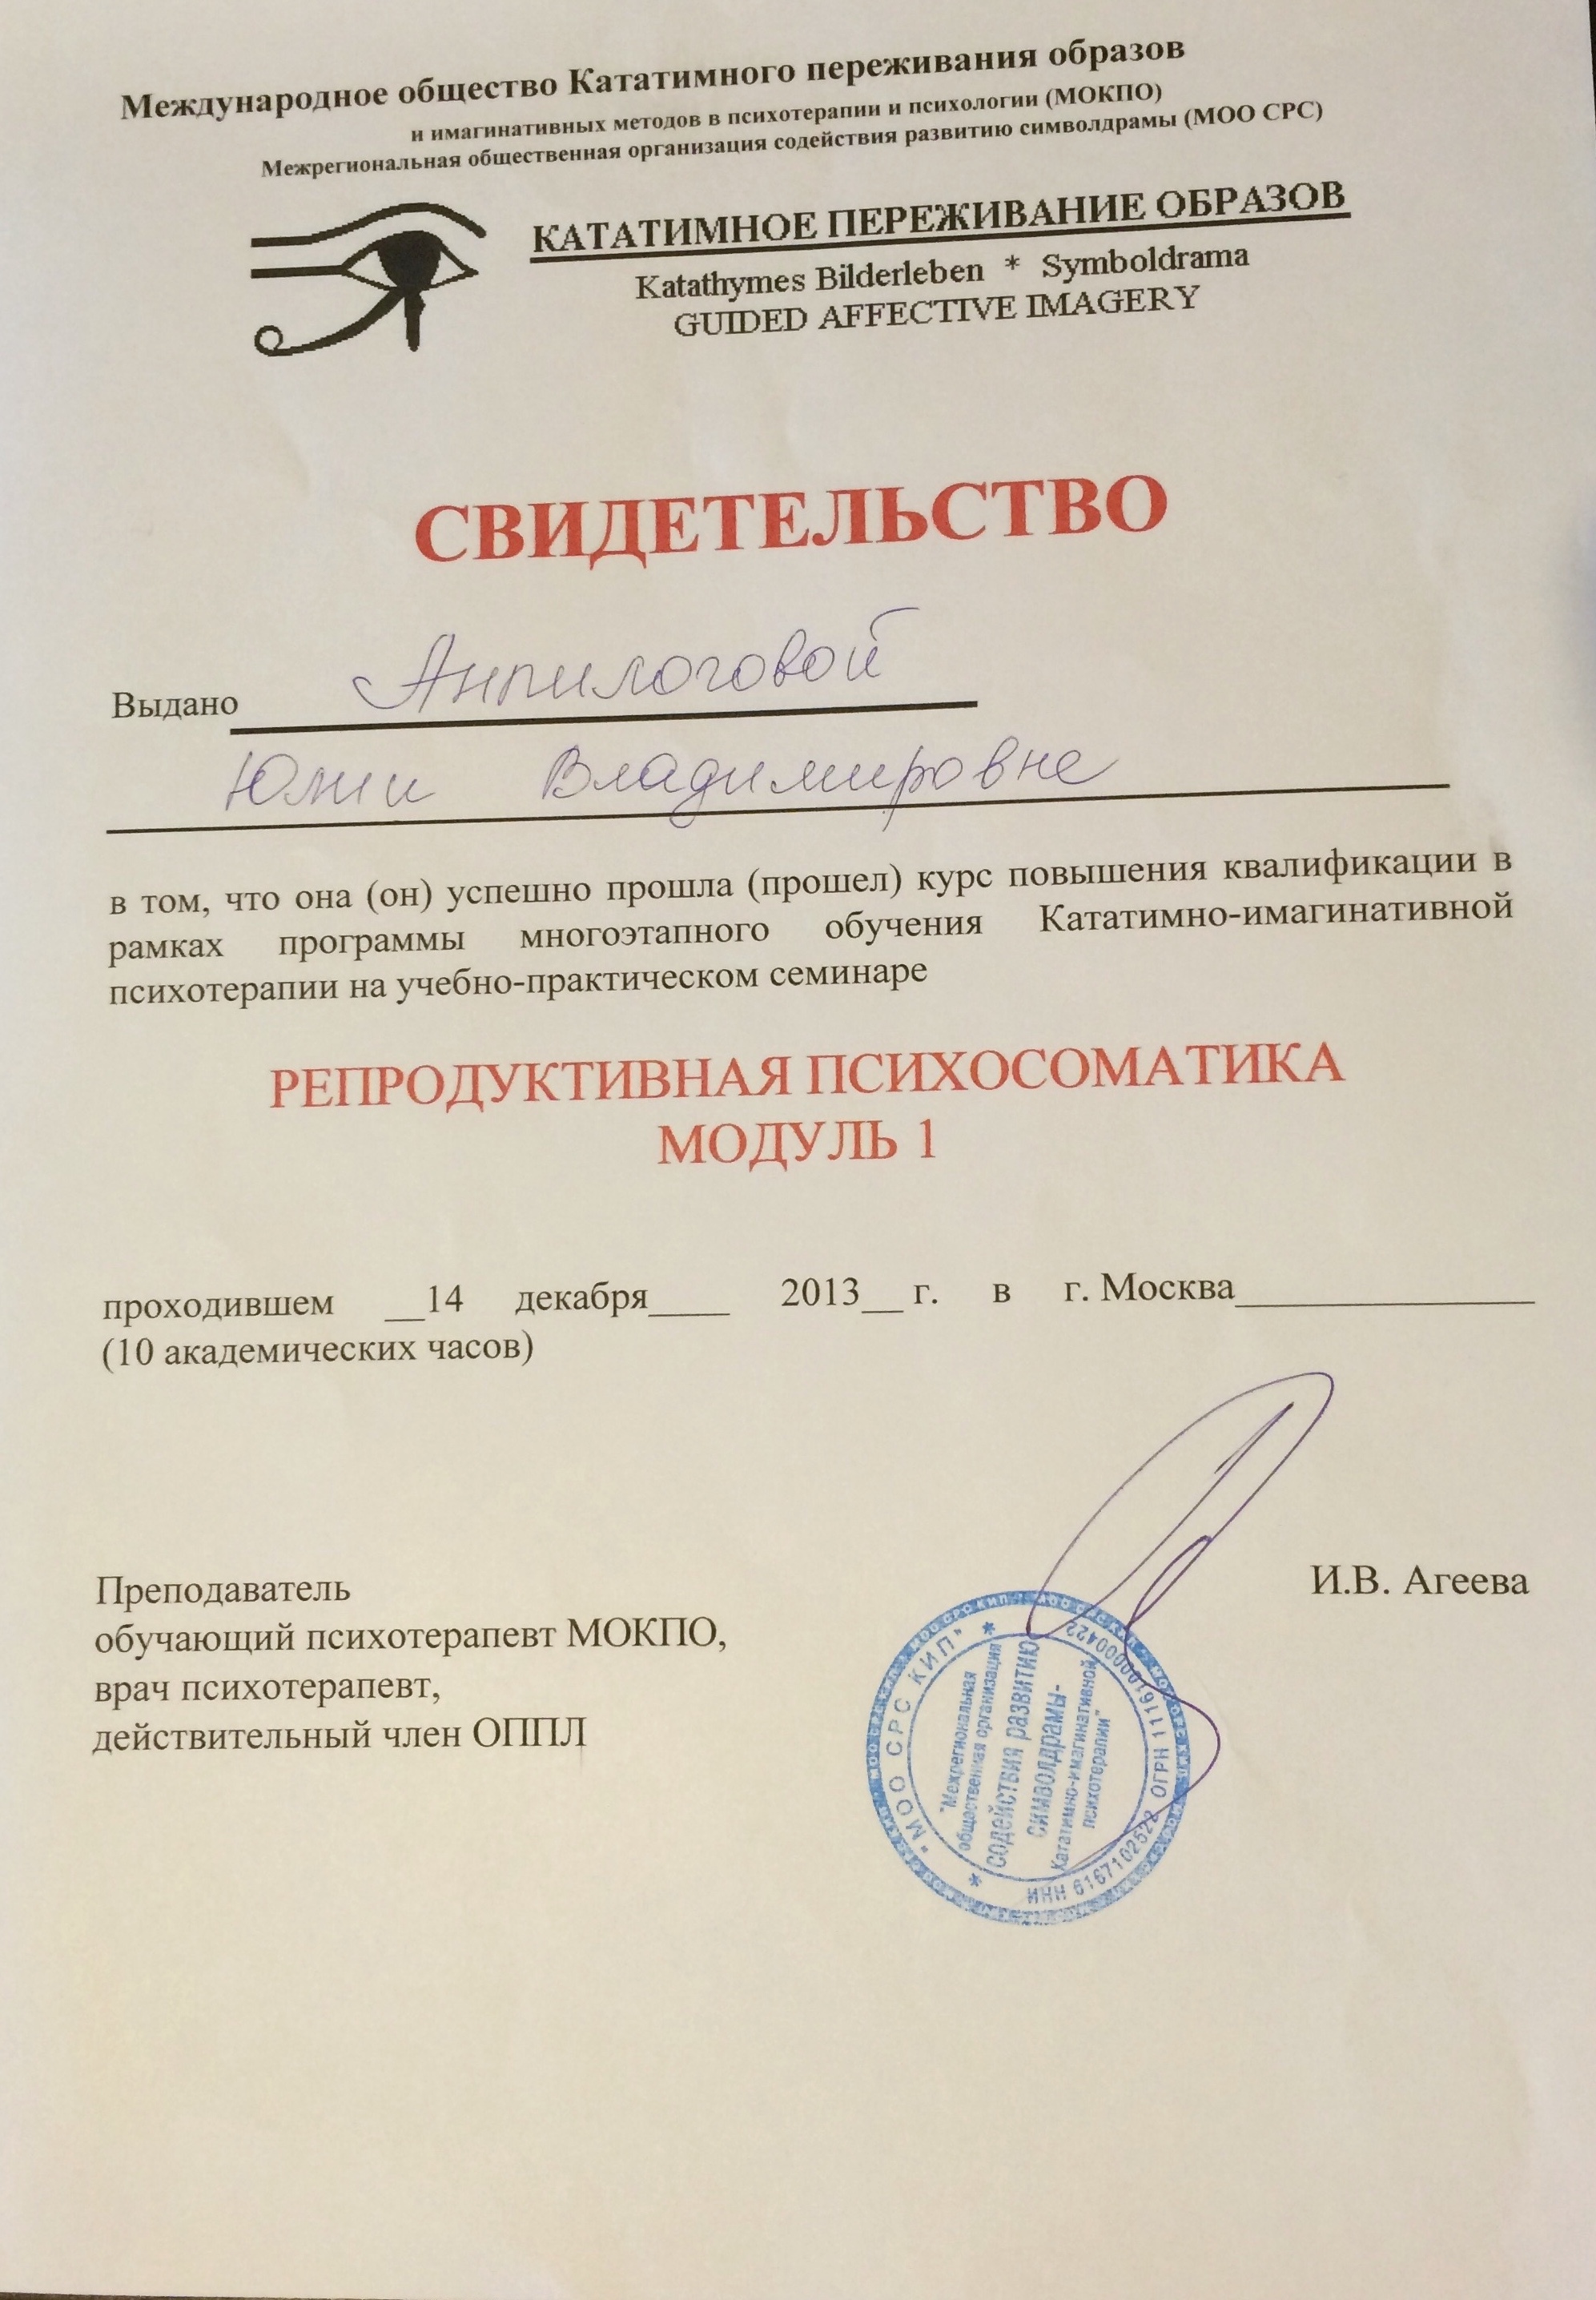 Международное общество Кататимного переживания образов
и имагинативных методов в психотерапии и психологии (МОКПО)
Межрегиональная общественная организация содействия развитию символдрамы (МОО СРС)
КАТАТИМНОЕ ПЕРЕЖИВАНИЕ ОБРАЗОВ
Katathymes Bilderleben * Symboldrama
GUIDED AFFECTIVE IMAGERY
СВИДЕТЕЛЬСТВО
Выдано Анпилоговой
Юлии Владимировне
в том, что она (он) успешно прошла (прошел) курс повышения квалификации в
рамках программы многоэтапного обучения Кататимно-имагинативной
психотерапии на учебно-практическом семинаре
РЕПРОДУКТИВНАЯ ПСИХОСОМАТИКА
МОДУЛЬ 1
проходившем __14 декабря____ 2013__ г. в г. Москва_______________
(10 академических часов)
И.В. Агеева
Преподаватель
обучающий психотерапевт МОКПО,
врач психотерапевт,
действительный член ОППЛ
* "МОО СРС КИП" *
ИНН 6167102522 ОГРН 1116100000422
"Межрегиональная
общественная организация
содействия развитию
символдрамы-
Кататимно-имагинативной
психотерапии"